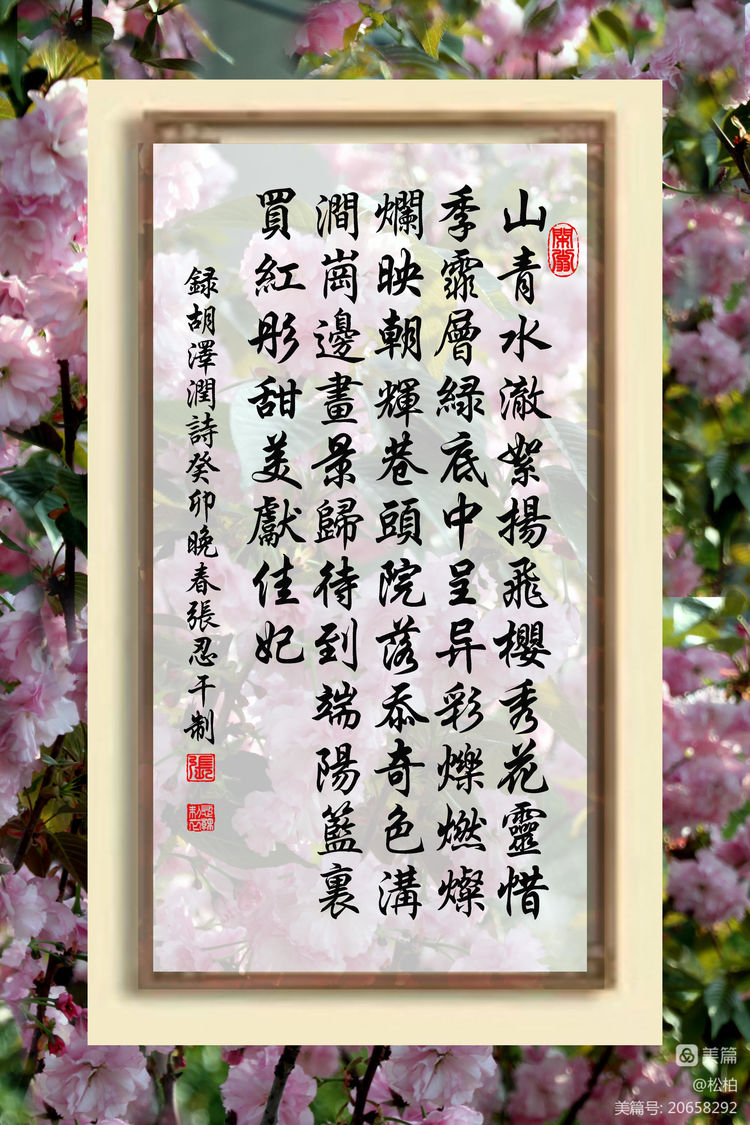 山青水澈絮揚飛櫻秀花靈惜
季霏層緑底中呈异彩爍燃燦
爛映朝輝巷頭院落忝奇色溝
澗崗邊畫景歸待到端陽籃裏
買紅彤甜美獻佳妃
録胡澤潤詩癸卯晚春張忍干制
張
美篇
@松柏
美篇号: 20658292